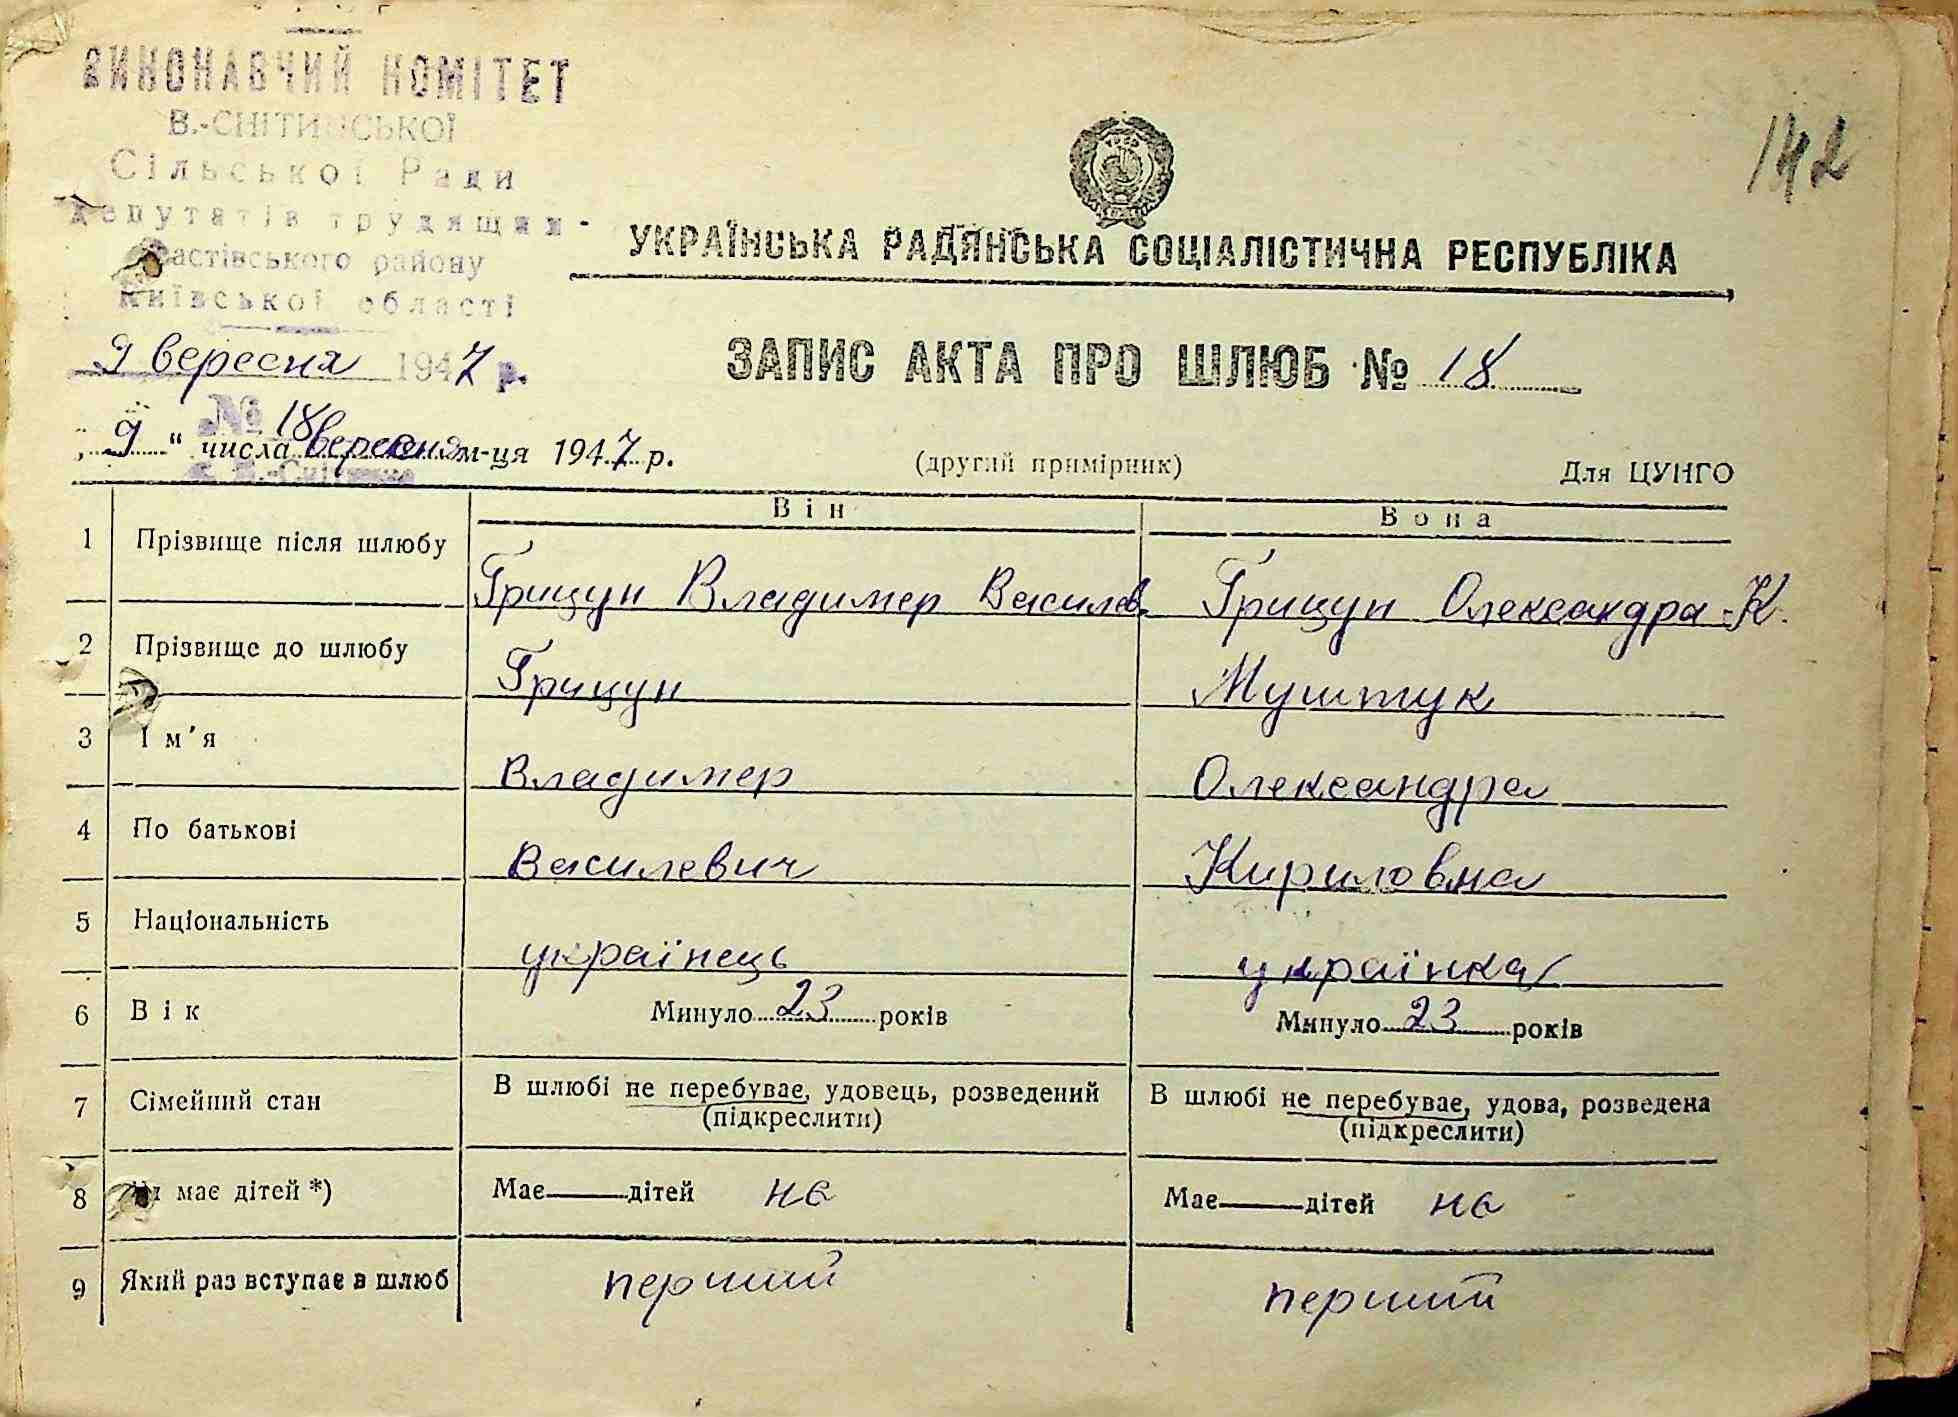 ВИКОНАВЧИЙ КОМІТЕТ
В.-СНІТИНСЬКОЇ
Сільської Ради
депутатів трудящих
Фастівського району
Київської області
9 вересня 1947 р.
№ 18
142
УКРАЇНСЬКА РАДЯНСЬКА СОЦІАЛІСТИЧНА РЕСПУБЛІКА
ЗАПИС АКТА ПРО ШЛЮБ № 18
„ 9 “ числа вересня м-ця 1947 р.
(другий примірник)
Для ЦУНГО
Він Вона
1 Прізвище після шлюбу Грицун Владимер Василев. Грицун Олександра К.
2 Прізвище до шлюбу Грицун Муштук
3 Ім'я Владимер Олександра
4 По батькові Василевич Кириловна
5 Національність українець українка
6 Вік Минуло 23 років Минуло 23 років
7 Сімейний стан В шлюбі не перебуває, удовець, розведений В шлюбі не перебуває, удова, розведена
(підкреслити) (підкреслити)
8 Чи має дітей *) Має — дітей не Має — дітей не
9 Який раз вступає в шлюб перший перший